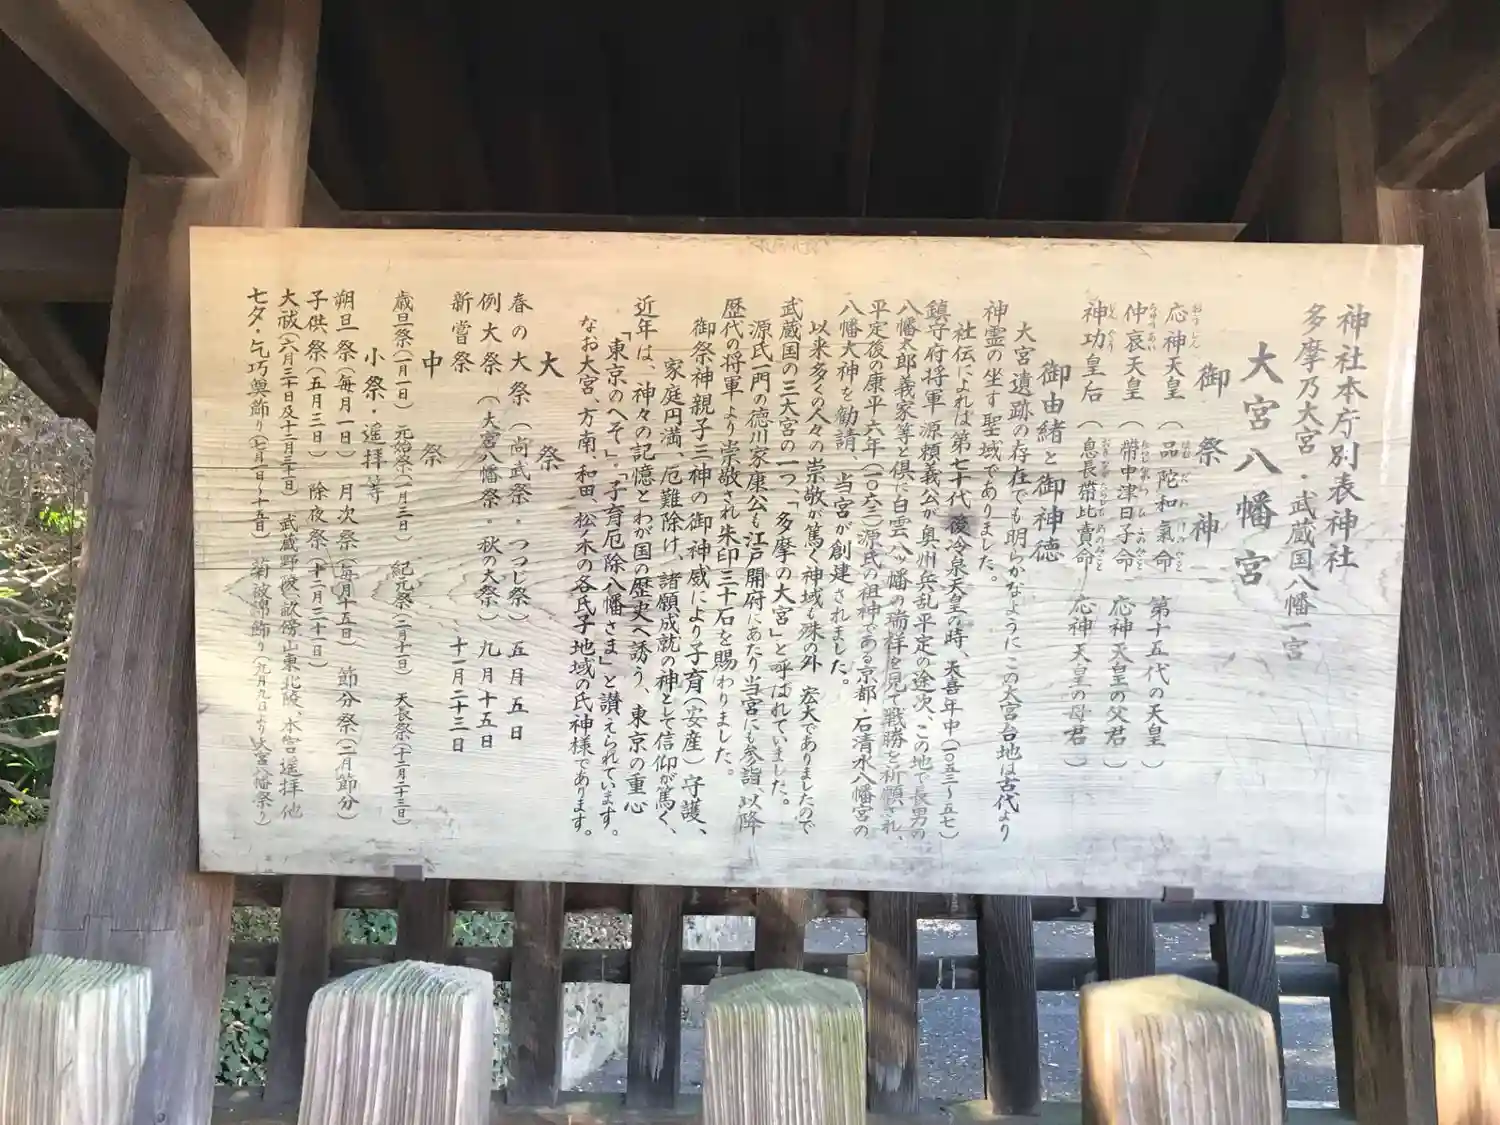 神社本庁別表神社
多摩乃大宮・武蔵国八幡一宮
大宮八幡宮
御祭神
応神天皇（品陀和氣命 第十五代の天皇）
仲哀天皇（帯中津日子命 応神天皇の父君）
神功皇后（息長帯比賣命 応神天皇の母君）
御由緒と御神徳
大宮遺跡の存在でも明らかなようにこの大宮台地は古代より
神霊の坐す聖域でありました。
社伝によれば第七十代 後冷泉天皇の時、天喜年中（一〇五三～五七）
鎮守府将軍 源頼義公が奥州兵乱平定の途次、この地で長男の
八幡太郎義家等と倶に白雲八ッ幡の瑞祥を見て戦勝を祈願され、
平定後の康平六年（一〇六三）源氏の祖神である京都・石清水八幡宮の
八幡大神を勧請、当宮が創建されました。
以来多くの人々の崇敬が篤く神域も殊の外 宏大でありましたので
武蔵国の三大宮の一つ、「多摩の大宮」と呼ばれていました。
源氏一門の徳川家康公も江戸開府にあたり当宮にも参詣、以降
歴代の将軍より崇敬され朱印三十石を賜わりました。
御祭神親子三神の御神威により子育（安産）守護、
家庭円満、厄難除け、諸願成就の神として信仰が篤く、
近年は、神々の記憶とわが国の歴史へ誘う、東京の重心
「東京のへそ」・「子育厄除八幡さま」と讃えられています。
なお大宮、方南、和田、松ノ木の各氏子地域の氏神様であります。
大祭
春の大祭（尚武祭・つつじ祭）五月五日
例大祭（大宮八幡祭・秋の大祭）九月十五日
新嘗祭 十一月二十三日
中祭
歳旦祭（一月一日） 元始祭（一月三日） 紀元祭（二月十一日） 天長祭（十二月二十三日）
小祭・遙拝等
朔旦祭（毎月一日） 月次祭（毎月十五日） 節分祭（二月節分）
子供祭（五月三日） 除夜祭（十二月三十一日）
大祓（六月三十日及十二月三十一日） 武蔵野陵、畝傍山東北陵、本宮遙拝他
七夕・乞巧奠飾り（七月一日～十五日） 菊被綿飾り（九月九日より大宮八幡祭り）